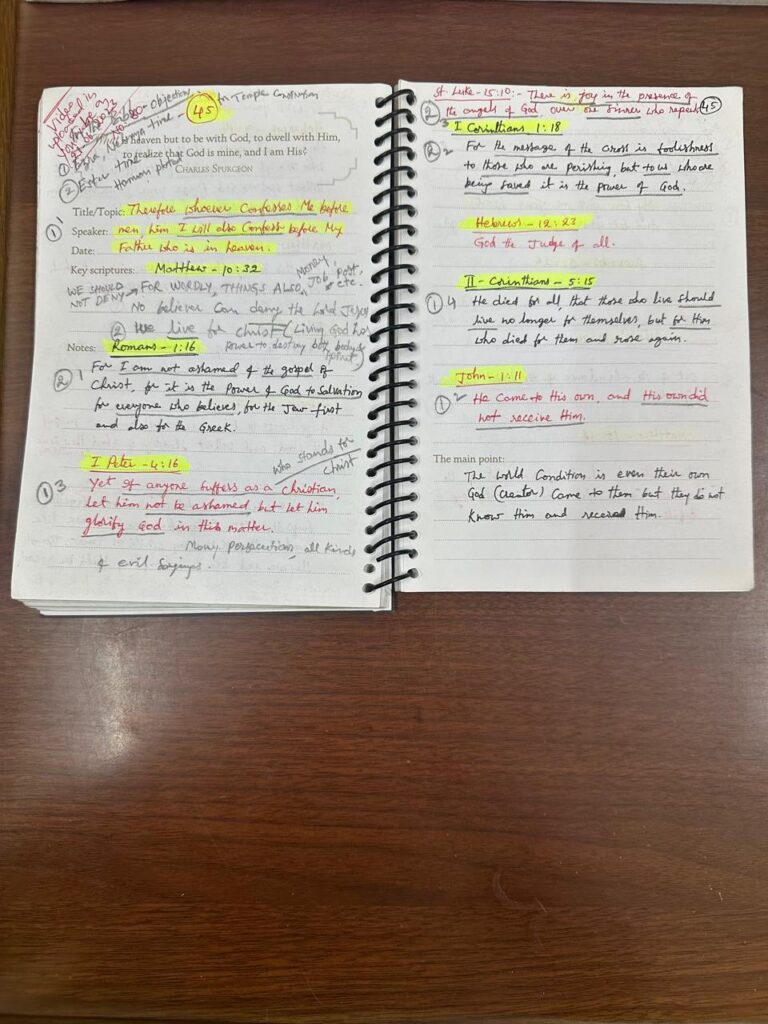 Video
uploaded in
You tube on
45
Temple Construction
① Ezra, Nehemiah time - objection
② Ester time
Haman plotted
heaven but to be with God, to dwell with Him,
to realize that God is mine, and I am His?
CHARLES SPURGEON
Title/Topic: Therefore whoever Confesses Me before
① 1
Speaker: men, him I will also Confess before My
Date: Father who is in heaven.
Key scriptures: Matthew - 10:32
WE SHOULD NOT DENY → FOR WORDLY, THINGS ALSO, Money, JOB, post, etc.
No believer Can deny the Lord Jesus
② We live for Christ (Living God has
power to destroy both body & spirit)
Notes: Romans - 1:16
② 1 For I am not ashamed of the gospel of
Christ, for it is the Power of God to Salvation
for everyone who believes, for the Jew first
and also for the Greek.
who stands for
Christ
I Peter - 4:16
① 3 Yet if anyone suffers as a Christian,
let him not be ashamed, but let him
glorify God in this matter.
Many persecutions, all kinds
of evil sayings.
St Luke - 15:10 :- There is joy in the presence of 45
② 3 the angels of God over one sinner who repents
I Corinthians 1:18
② 2 For the message of the Cross is foolishness
to those who are perishing, but to us who are
being saved it is the power of God.
Hebrews - 12:23
God the Judge of all.
II - Corinthians - 5:15
① 4 He died for all that those who live should
live no longer for themselves, but for Him
who died for them and rose again.
John - 1:11
① 2 He Came to His own, and His own did
not receive Him.
The main point:
The world Condition is even their own
God (Creator) Came to them but they do not
know Him and received Him.